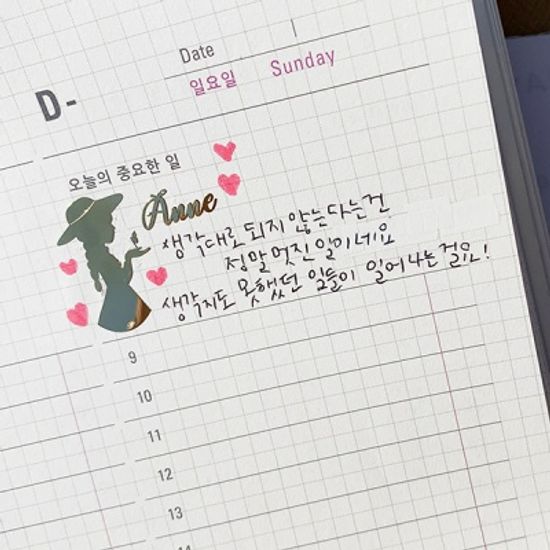 Date
일요일 Sunday
D-
오늘의 중요한 일
Anne
생각대로 되지 않는다는건
정말 멋진일이네요
생각지도 못했던 일들이 일어나는걸요!
9
10
11
12
13